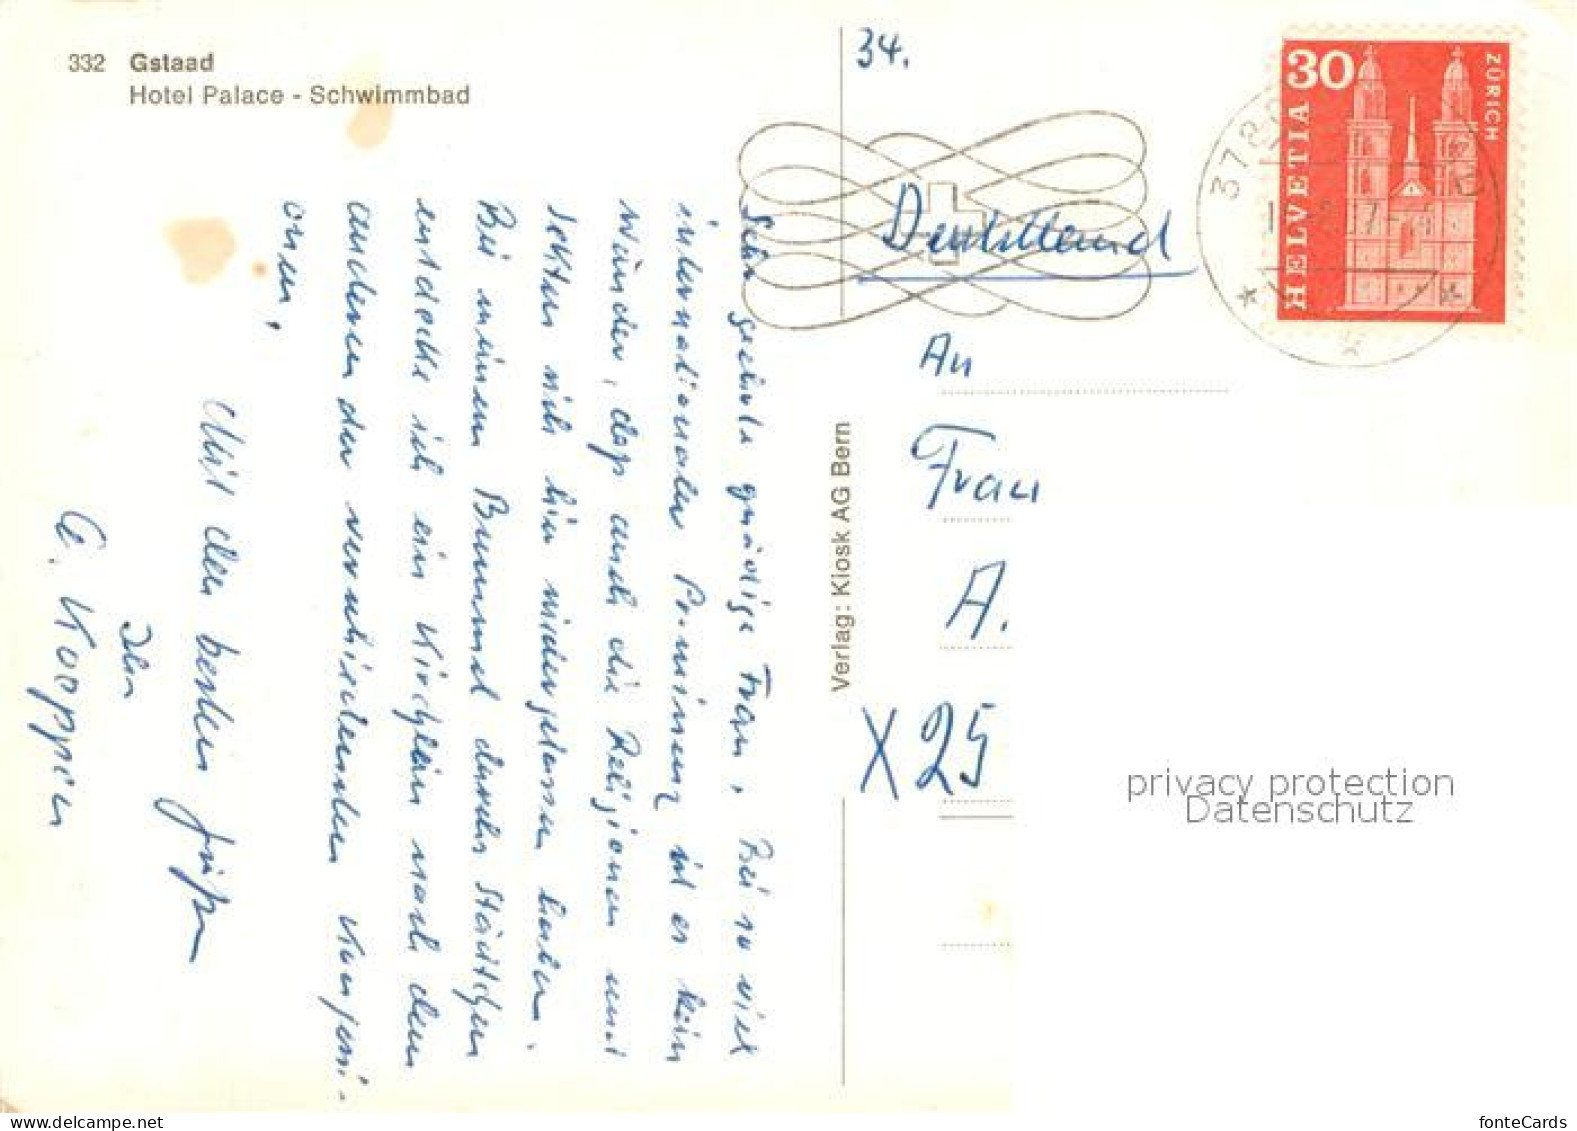 332 Gstaad
Hotel Palace - Schwimmbad
34.
30
HELVETIA
ZÜRICH
3780
Deutschland
An
Frau
A.
X 25
Verlag: Kiosk AG Bern
Sehr geehrte gnädige Frau, Bei so viel
internationaler Prominenz ist es kein
Wunder, daß auch die Religionen und
Sekten sich hier niedergelassen haben.
Bei meinem Bummel durchs Städtchen
entdeckte ich ein Kirchlein nach dem
anderen der verschiedensten Konfessi-
onen.
Mit den besten Grüßen
Ihr
A. Koeppen
privacy protection
Datenschutz
www.delcampe.net
fonteCards